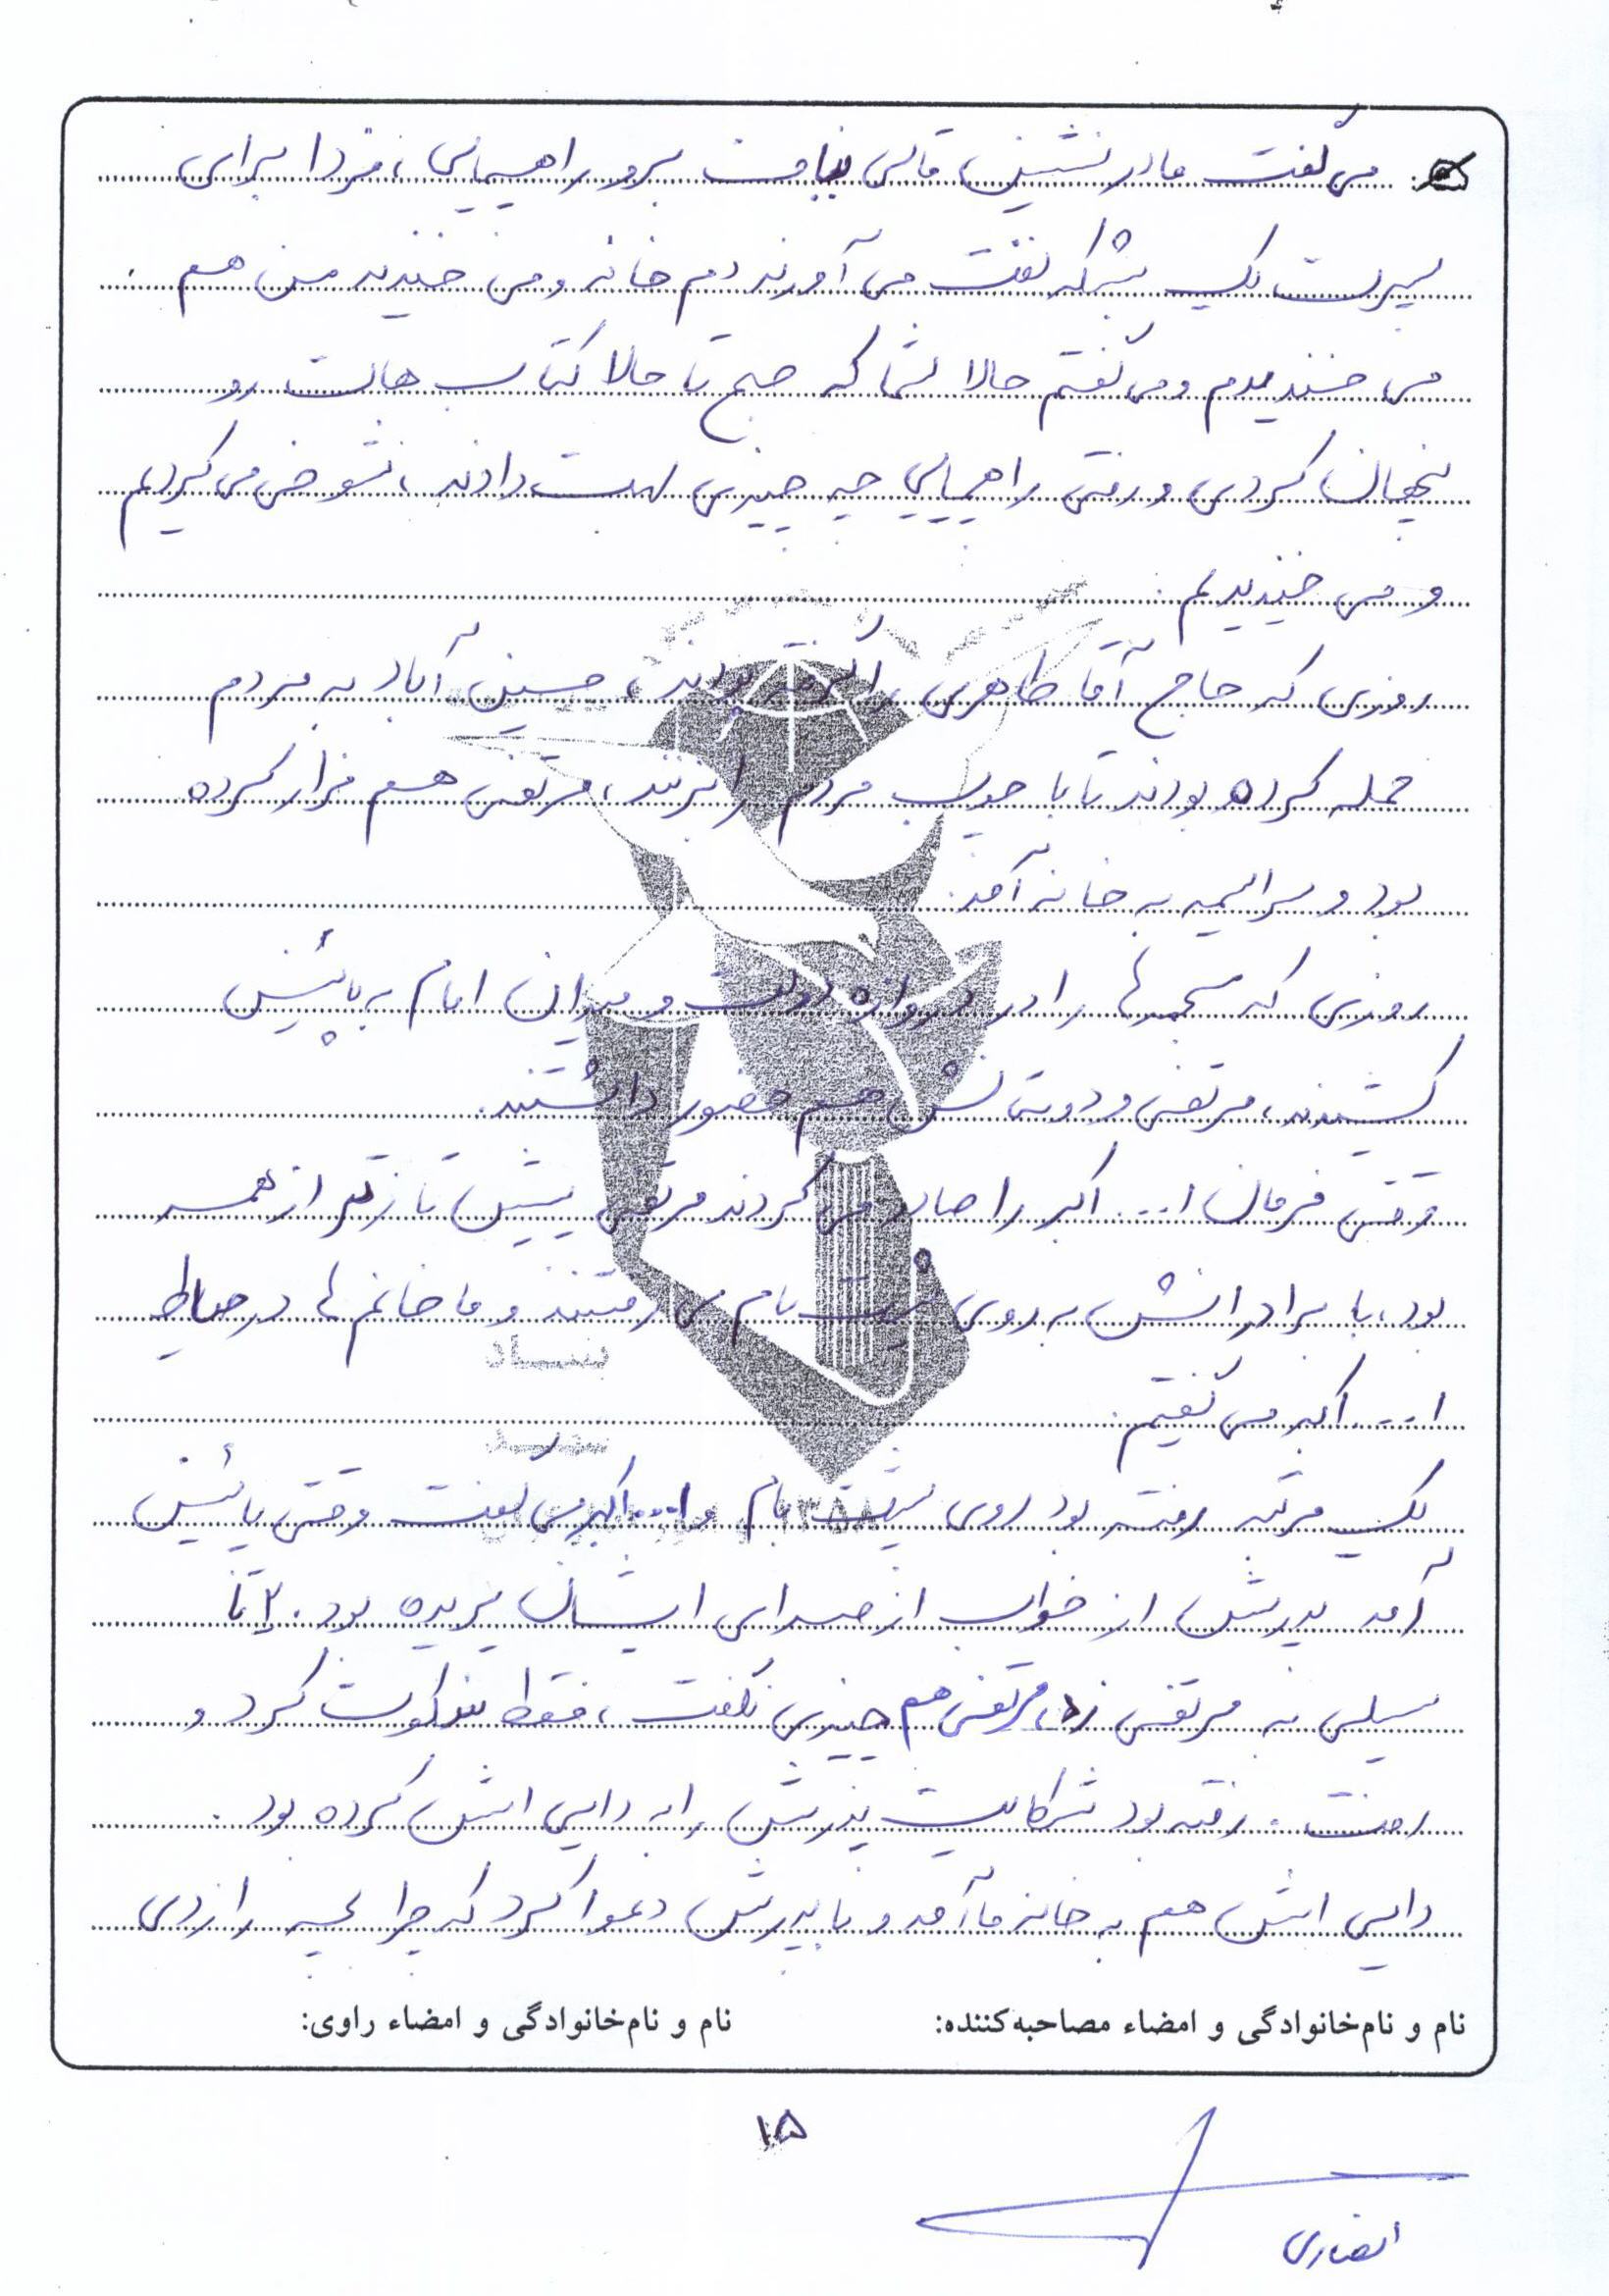 می گفت مادر نشین، قالی بباف برو راهپیمایی، فردا برای
پسرت یک بشکه نفت می آورند دم خانه و می خندید من هم
می خندیدم و می گفتم حالا شما که صبح تا حالا کتاب هات رو
پنهان کردی و رفتی راهپیمایی چه چیزی بهت دادند، شوخی می کردیم
و می خندیدیم.
روزی که حاج آقا طاهری را گرفته بودند، حسین آباد به مردم
حمله کرده بودند تا با چوب مردم را بزنند، مرتضی هم فرار کرده
بود و سراسیمه به خانه آمد.
روزی که مجسمه‌ها را در دروازه دولت و میدان امام به پائین
کشیدند، مرتضی و دوستانش هم حضور داشتند.
وقتی فرمان ا... اکبر را صادر می کردند مرتضی پیش تازتر از همه
بود، با برادرانش به روی پشت بام می رفتند و ما خانم ها در حیاط
ا... اکبر می گفتیم.
یک مرتبه رفته بود روی پشت بام و ا... اکبر می گفت وقتی پائین
آمد پدرش از خواب از صدای ایشان پریده بود. ۲ تا
سیلی به مرتضی زد، مرتضی هم چیزی نگفت، فقط سکوت کرد و
رفت. رفته بود شکایت پدرش را به دایی اش کرده بود.
دایی اش هم به خانه ما آمد و با پدرش دعوا کرد که چرا بچه را زدی
نام و نام‌خانوادگی و امضاء مصاحبه‌کننده: نام و نام‌خانوادگی و امضاء راوی:
۱۵
انصاری